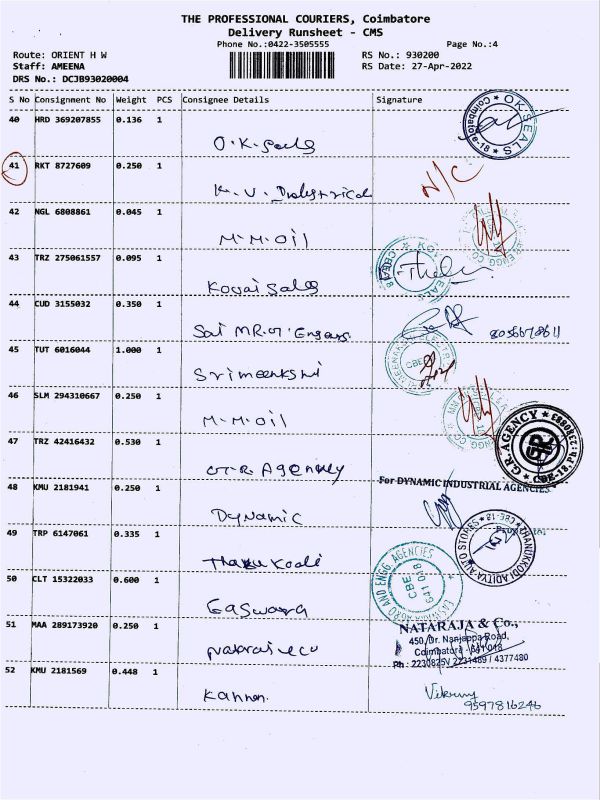 THE PROFESSIONAL COURIERS, Coimbatore
Delivery Runsheet - CMS
Phone No.:0422-3505555
Page No.:4
Route: ORIENT H W
RS No.: 930200
Staff: AMEENA
RS Date: 27-Apr-2022
DRS No.: DCJB93020004
S No Consignment No Weight PCS Consignee Details Signature
40 HRD 369207855 0.136 1
O.K. Seals
OK SEALS
Coimbatore-18
41 RKT 8727609 0.250 1
K. V. Industrical
N/C
42 NGL 6808861 0.045 1
M.M.Oil
43 TRZ 275061557 0.095 1
Kovai Sales
44 CUD 3155032 0.350 1
Sai
8056678611
45 TUT 6016044 1.000 1
Srimeenkshi
CBE
46 SLM 294310667 0.250 1
M.M.Oil
47 TRZ 42416432 0.530 1
G.R. Agency
G.R. AGENCY
CBE-18
For DYNAMIC INDUSTRIAL AGENCIES
48 KMU 2181941 0.250 1
Dynamic
49 TRP 6147061 0.335 1
CHANDIKKODI ADITYA AUTO STORES
CBE-18
50 CLT 15322033 0.600 1
Easwara
EASWARA AGRO AND ENGG AGENCIES
CBE
641 018
51 MAA 289173920 0.250 1
NATARAJA & Co.,
450, Dr. Nanjappa Road,
Coimbatore - 641 018
52 KMU 2181569 0.448 1
Kannan.
9597816246